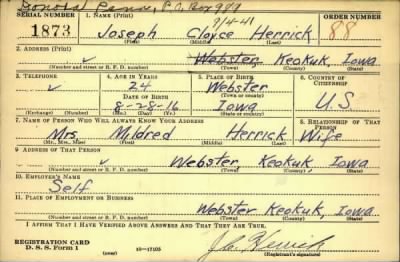 Donald Penn, P.O. Box 989
SERIAL NUMBER 1. NAME (Print) 7/4/41 ORDER NUMBER
1873 Joseph Cloyce Herrick 88
(First) (Middle) (Last)
2. ADDRESS (Print)
✓ Webster, Keokuk, Iowa
(Number and street or R. F. D. number) (Town) (County) (State)
3. TELEPHONE 4. AGE IN YEARS 5. PLACE OF BIRTH 6. COUNTRY OF CITIZENSHIP
✓ 24 Webster
DATE OF BIRTH (Town or county)
8-28-16 Iowa U S
(Exchange) (Number) (Mo.) (Day) (Yr.) (State or country)
7. NAME OF PERSON WHO WILL ALWAYS KNOW YOUR ADDRESS 8. RELATIONSHIP OF THAT PERSON
Mrs. Mildred Herrick Wife
(Mr., Mrs., Miss) (First) (Middle) (Last)
9. ADDRESS OF THAT PERSON
✓ Webster, Keokuk, Iowa
(Number and street or R. F. D. number) (Town) (County) (State)
10. EMPLOYER'S NAME
Self
11. PLACE OF EMPLOYMENT OR BUSINESS
Webster Keokuk, Iowa
(Number and street or R. F. D. number) (Town) (County) (State)
I AFFIRM THAT I HAVE VERIFIED ABOVE ANSWERS AND THAT THEY ARE TRUE.
REGISTRATION CARD
D. S. S. Form 1 (over) 16-17105 Herrick
(Registrant's signature)